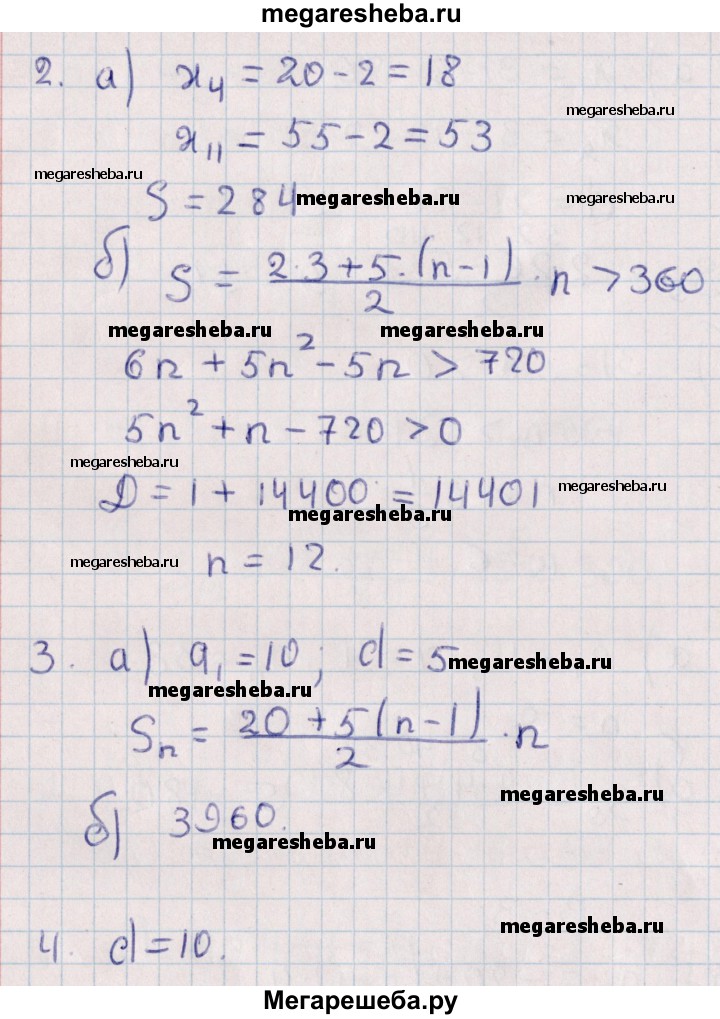 megaresheba.ru
2. а) x₄ = 20 - 2 = 18
megaresheba.ru
x₁₁ = 55 - 2 = 53
megaresheba.ru
S = 284 megaresheba.ru megaresheba.ru
б) S = (2·3 + 5·(n-1))/2 · n > 360
megaresheba.ru megaresheba.ru
6n + 5n² - 5n > 720
5n² + n - 720 > 0
megaresheba.ru
D = 1 + 14400 = 14401 megaresheba.ru
megaresheba.ru
megaresheba.ru n = 12.
3. а) a₁ = 10; d = 5 megaresheba.ru
megaresheba.ru
Sₙ = (20 + 5(n-1))/2 · n
megaresheba.ru
б) 3960.
megaresheba.ru
megaresheba.ru
4. d = 10.
Мегарешеба.ру